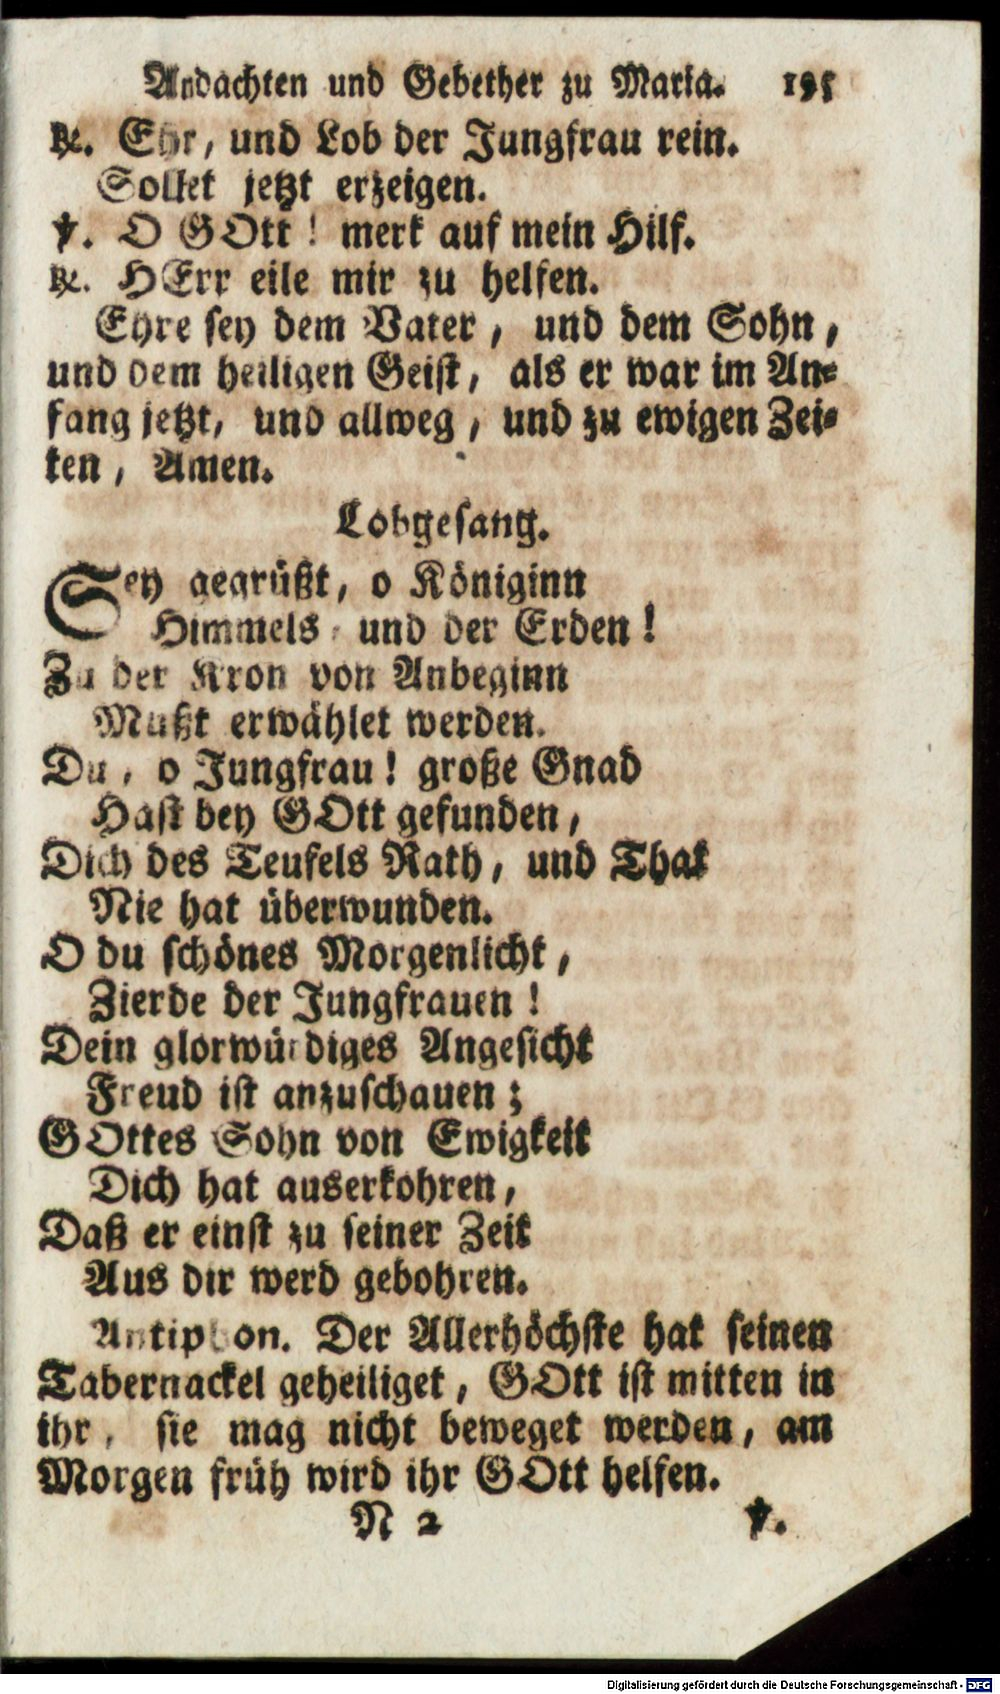 Andachten und Gebether zu Maria. 195
℟. Ehr, und Lob der Jungfrau rein.
Sollet jetzt erzeigen.
℣. O GOtt! merk auf mein Hilf.
℟. HErr eile mir zu helfen.
Ehre sey dem Vater, und dem Sohn,
und dem heiligen Geist, als er war im An-
fang jetzt, und allweg, und zu ewigen Zei-
ten, Amen.
Lobgesang.
Sey gegrüßt, o Königinn
Himmels, und der Erden!
Zu der Kron von Anbeginn
Mußt erwählet werden.
Du, o Jungfrau! große Gnad
Hast bey GOtt gefunden,
Dich des Teufels Rath, und That
Nie hat überwunden.
O du schönes Morgenlicht,
Zierde der Jungfrauen!
Dein glorwürdiges Angesicht
Freud ist anzuschauen;
GOttes Sohn von Ewigkeit
Dich hat auserkohren,
Daß er einst zu seiner Zeit
Aus dir werd gebohren.
Antiphon. Der Allerhöchste hat seinen
Tabernackel geheiliget, GOtt ist mitten in
ihr, sie mag nicht beweget werden, am
Morgen früh wird ihr GOtt helfen.
N 2 ℣.
Digitalisierung gefördert durch die Deutsche Forschungsgemeinschaft - DFG